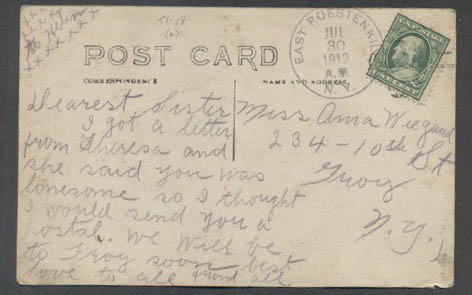 xxx
to Helen
xxxxxxx
51-14
(2)
POST CARD
CORRESPONDENCE
NAME AND ADDRESS
EAST POESTENKILL
JUL
30
1912
A.M
N.Y.
Dearest Sister
I got a letter
from Theresa and
she said you was
lonesome so I thought
I would send you a
postal. We will be
to Troy soon best
love to all from all
Miss Anna Wiegand
234-10th St
Troy
N.Y.